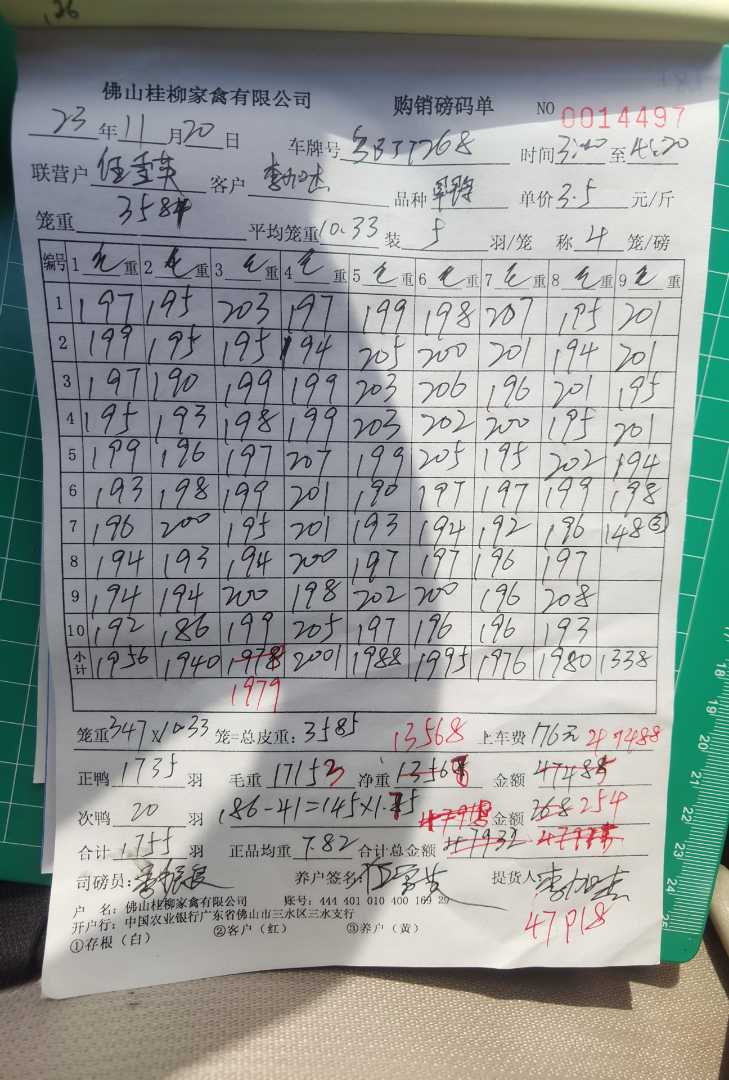 佛山桂柳家禽有限公司 购销磅码单 NO 0014497
23 年 11 月 20 日 车牌号 时间 3:40 至 4:20
联营户 客户 李加杰 品种 单价 3.5 元/斤
笼重 358 平均笼重 10.33 装 5 羽/笼 称 4 笼/磅
编号 1 毛重 2 毛重 3 毛重 4 毛重 5 毛重 6 毛重 7 毛重 8 毛重 9 毛重
1 197 195 203 197 199 198 207 195 201
2 199 195 195 194 205 200 201 194 201
3 197 190 199 199 203 206 196 201 195
4 195 193 198 199 203 202 200 195 201
5 199 196 197 207 199 205 195 202 194
6 193 198 199 201 190 197 197 199 198
7 196 200 195 201 193 194 192 196 148③
8 194 193 194 200 197 197 196 197
9 194 194 200 198 202 200 196 208
10 192 186 199 205 197 196 196 193
小计 1956 1940 1978 2001 1988 1995 1976 1980 1338
1979
笼重 347×10.33 笼=总皮重: 3585 13568 上车费 176元 47488
正鸭 1735 羽 毛重 17153 净重 金额
次鸭 20 羽 186-41=145×1.75 金额 268 254
合计 1755 羽 正品均重 7.82 合计总金额 47932
司磅员: 养户签名: 提货人: 李加杰
户 名: 佛山桂柳家禽有限公司 账号: 444 401 010 400 169 29
开户行: 中国农业银行广东省佛山市三水区三水支行
①存根(白) ②客户(红) ③养户(黄)
47918